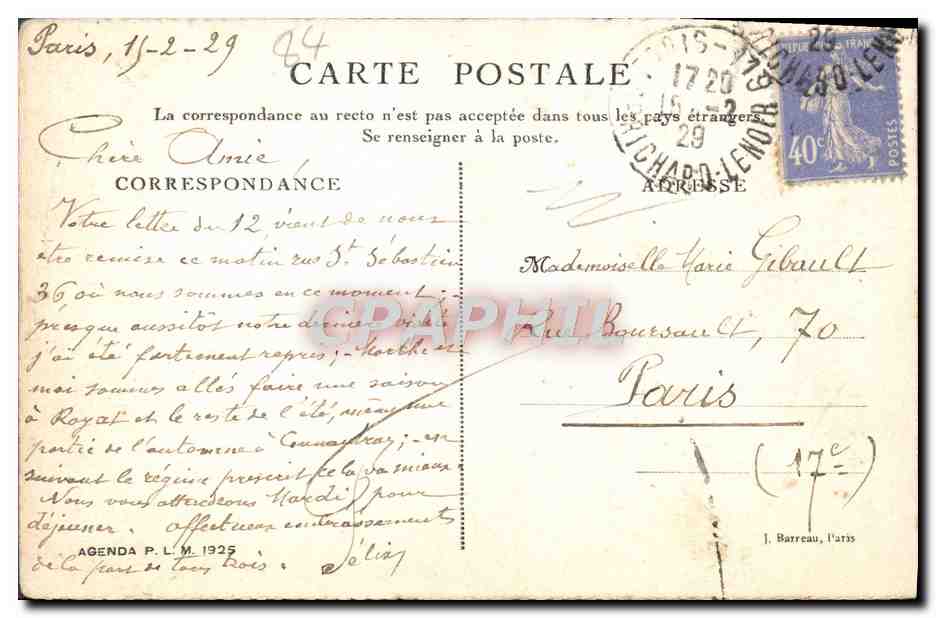 Paris, 15-2-29
84
CARTE POSTALE
La correspondance au recto n'est pas acceptée dans tous les pays étrangers.
Se renseigner à la poste.
PARIS-119
17 20
15 -2
29
RICHARD-LENOIR
40c
POSTES
Chère Amie,
CORRESPONDANCE
Votre lettre du 12, vient de nous
être remise ce matin rue St. Sébastien
36 où nous sommes en ce moment ;-
presque aussitôt notre dernière visite
j'ai été fortement repris ;- Marthe et
moi sommes allés faire une saison
à Royat et le reste de l'été, même une
partie de l'automne à ;- en
suivant le régime prescrit cela va mieux.
Nous vous attendrons Mardi pour
déjeuner. affectueux embrassements
de la part de tous trois. Félix
AGENDA P. L. M. 1925
ADRESSE
Mademoiselle Marie Gibault
Rue Boursault, 70
Paris
(17e)
J. Barreau, Paris
CPAPHIL